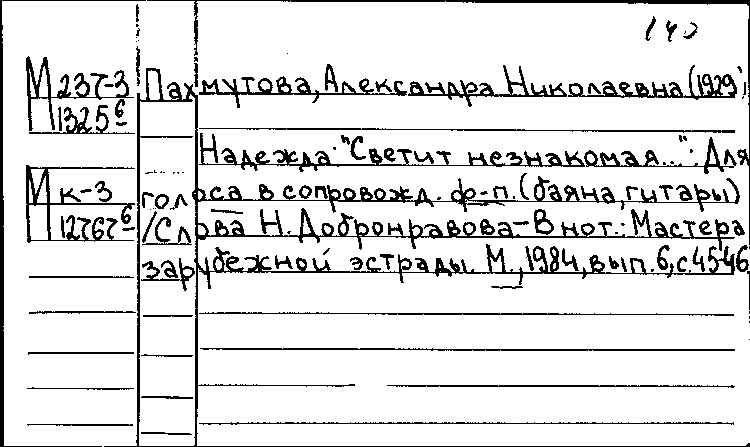 140
М 237-3 Пахмутова, Александра Николаевна (1929)
П 1325 6
Надежда: "Светит незнакомая...": Для
М к-3 голоса в сопровожд. ф-п. (баяна, гитары)
П 12767 6 /Слова Н. Добронравова - В нот.: Мастера
зарубежной эстрады. М., 1984, вып. 6, с. 45-46